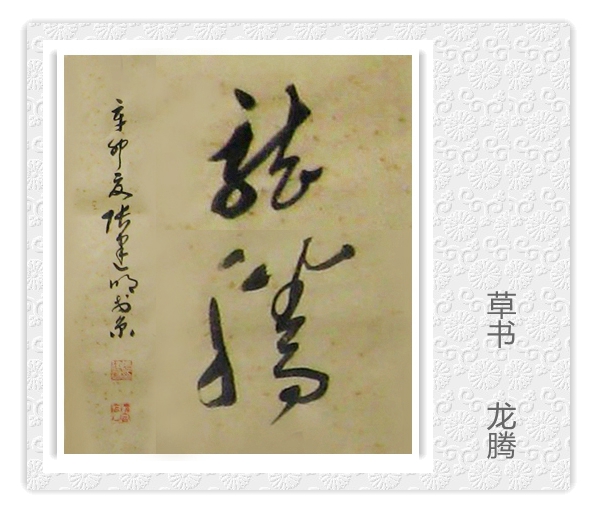 龍騰
辛卯夏張建明书京
草书 龙腾